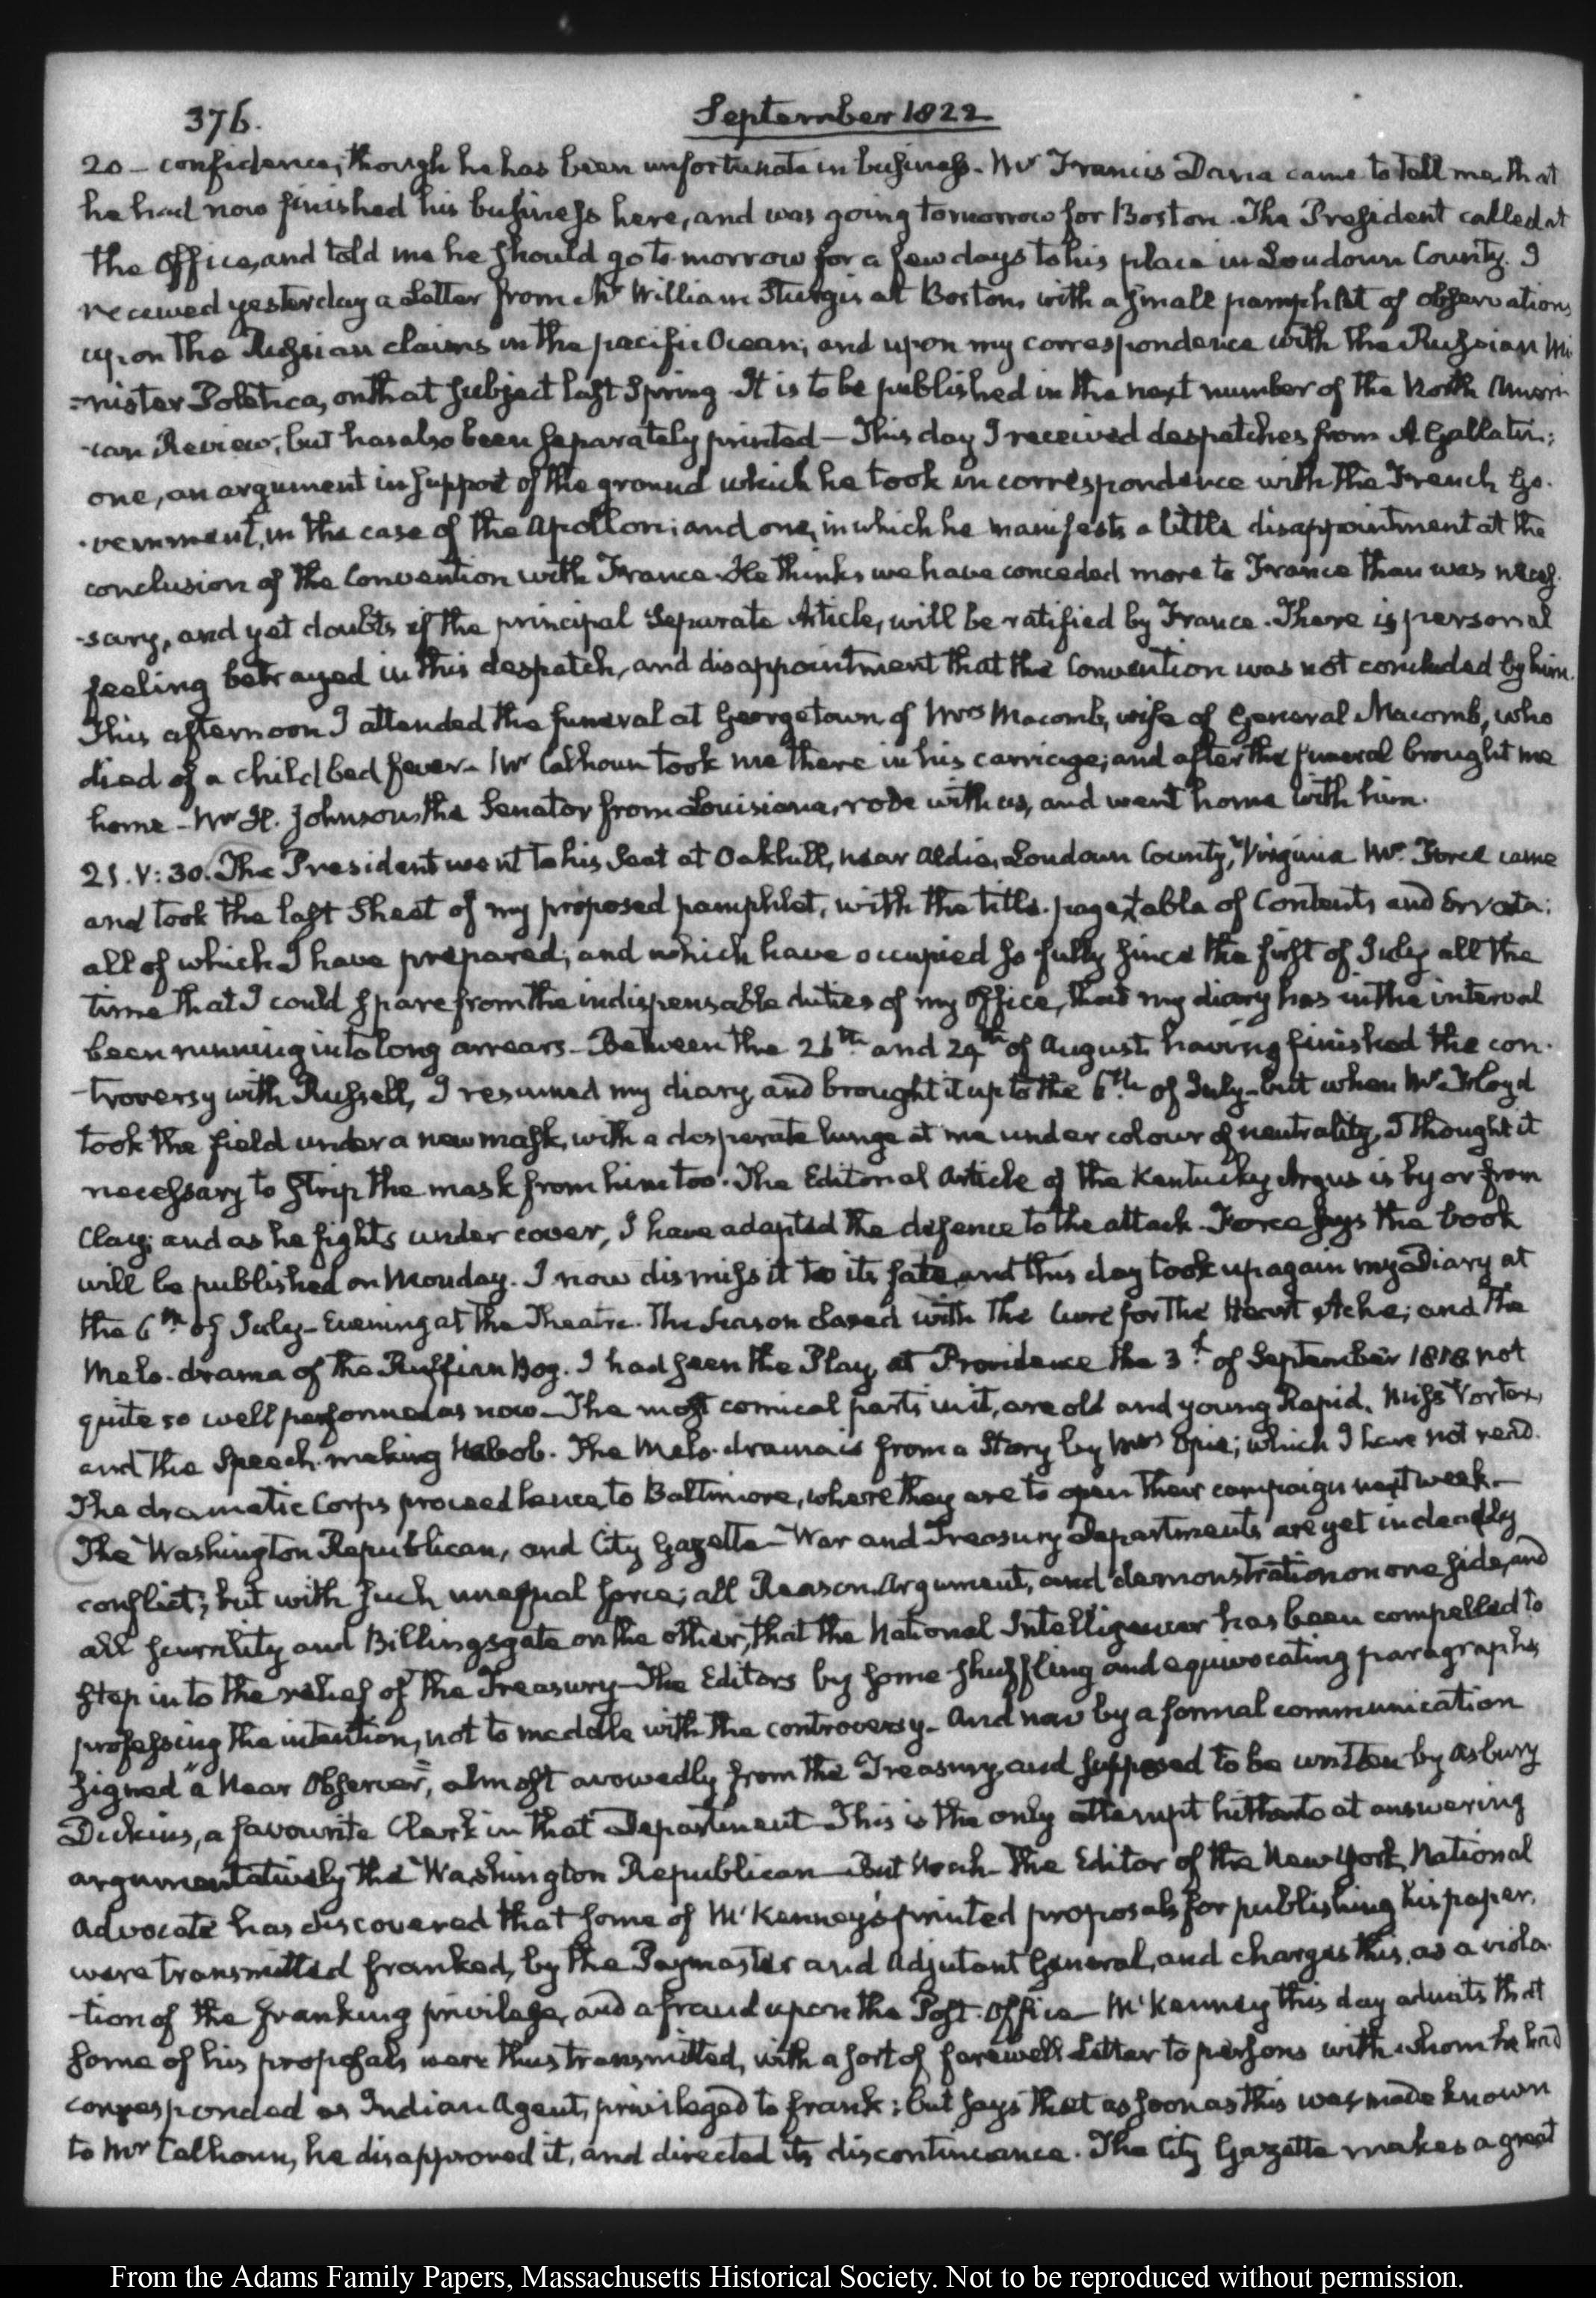 376.
September 1822
20 – confidence, though he has been unfortunate in business. Mr Francis Dana came to tell me that
he had now finished his business here, and was going tomorrow for Boston. The President called at
the Office, and told me he should go to-morrow for a few days to his place in Loudoun County. I
received yesterday a Letter from Mr William Sturgis at Boston, with a small pamphlet of observations
upon the Russian claims in the pacific Ocean; and upon my correspondence with the Russian Mi
-nister Poletica, on that subject last Spring. It is to be published in the next number of the North Ameri-
-can Review; but has also been separately printed – This day I received despatches from A. Gallatin;
one, an argument in support of the ground which he took in correspondence with the French Go-
-vernment, in the case of the Apollon; and one, in which he manifests a little disappointment at the
conclusion of the Convention with France. He thinks we have conceded more to France than was neces-
-sary, and yet doubts if the principal Separate Article, will be ratified by France. There is personal
feeling betrayed in this despatch, and disappointment that the Convention was not concluded by him.
This afternoon I attended the funeral at Georgetown of Mrs Macomb, wife of General Macomb, who
died of a child bed fever – Mr Calhoun took me there in his carriage; and after the funeral brought me
home – Mr H. Johnson the Senator from Louisiana, rode with us, and went home with him.
21. V: 30. The President went to his Seat at Oakhill, near Aldie, Loudoun County, Virginia Mr Force came
and took the last Sheet of my proposed pamphlet, with the title-page, table of Contents and Errata:
all of which I have prepared; and which have occupied so fully since the first of July all the
time that I could spare from the indispensable duties of my Office, that my diary has in the interval
been running into long arrears – Between the 26th and 29th of August having finished the con-
-troversy with Russell, I resumed my diary, and brought it up to the 6th of July – but when Mr Floyd
took the field under a new mask, with a desperate lunge at me under colour of neutrality, I thought it
necessary to strip the mask from him too. The Editorial Article of the Kentucky Argus is by or from
Clay; and as he fights under cover, I have adapted the defence to the attack. Force says the book
will be published on Monday. I now dismiss it to its fate, and this day took up again my Diary at
the 6th of July – Evening at the Theatre. The Season closed with The Cure for the Heart Ache; and the
Melo-drama of the Ruffian Boy. I had seen the Play, at Providence the 3d of September 1818 not
quite so well performed as now – The most comical parts in it, are old and young Rapid, Miss Vortex,
and the Speech-making Nabob. The Melo-drama is from a Story by Mrs Opie; which I have not read.
The dramatic Corps proceed hence to Baltimore, where they are to open their campaign next week –
The Washington Republican, and City Gazette – War and Treasury Departments are yet in deadly
conflict; but with such unequal force; all Reason, Argument, and demonstration on one side, and
all scurrility and Billingsgate on the other, that the National Intelligencer has been compelled to
step in to the relief of the Treasury – The Editors by some shuffling and equivocating paragraphs
professing the intention, not to meddle with the controversy – And now by a formal communication
signed "a Near Observer", almost avowedly from the Treasury, and supposed to be written by Asbury
Dickins, a favourite Clerk in that Department – This is the only attempt hitherto at answering
argumentatively the Washington Republican – But Noah the Editor of the New York, National
Advocate has discovered that some of McKenney's printed proposals for publishing his paper,
were transmitted franked, by the Paymaster and Adjutant General, and charges this, as a viola-
-tion of the franking privilege, and a fraud upon the Post-Office – McKenney this day admits that
some of his proposals were thus transmitted, with a sort of farewell Letter to persons with whom he had
corresponded as Indian Agent, privileged to frank; but says that as soon as this was made known
to Mr Calhoun, he disapproved it, and directed its discontinuance. The City Gazette makes a great
From the Adams Family Papers, Massachusetts Historical Society. Not to be reproduced without permission.